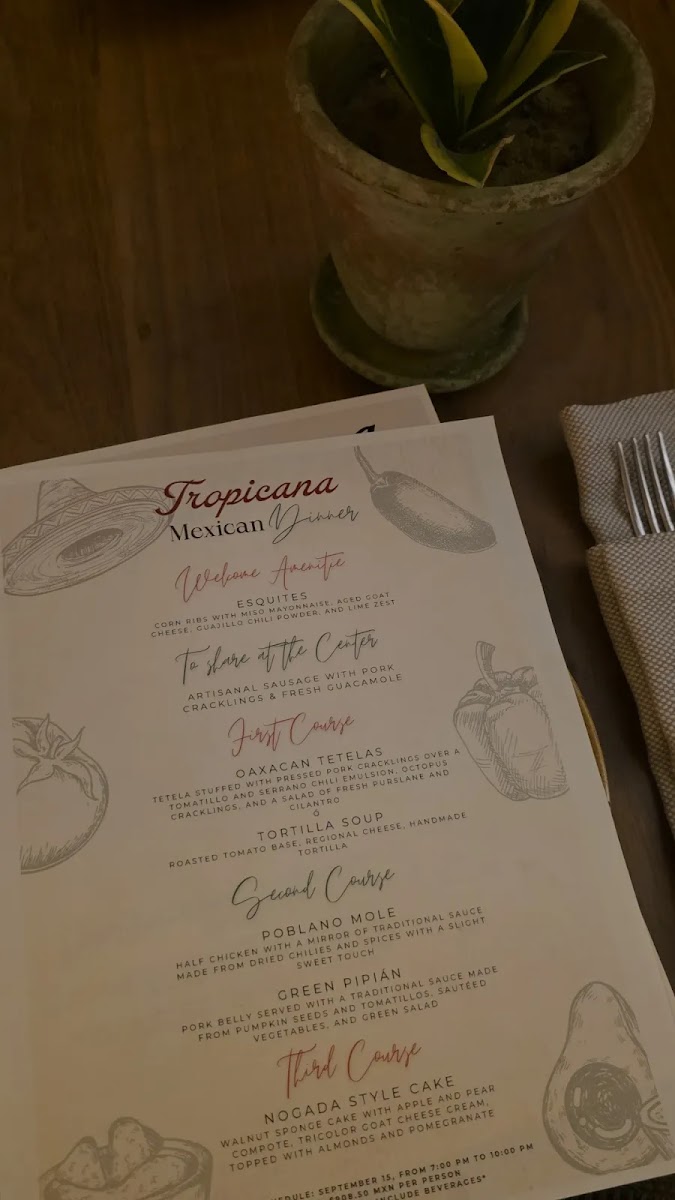 Tropicana
Mexican Dinner
Welcome Amenitie
ESQUITES
CORN RIBS WITH MISO MAYONNAISE, AGED GOAT
CHEESE, GUAJILLO CHILI POWDER, AND LIME ZEST
To share at the Center
ARTISANAL SAUSAGE WITH PORK
CRACKLINGS & FRESH GUACAMOLE
First Course
OAXACAN TETELAS
TETELA STUFFED WITH PRESSED PORK CRACKLINGS OVER A
TOMATILLO AND SERRANO CHILI EMULSION, OCTOPUS
CRACKLINGS, AND A SALAD OF FRESH PURSLANE AND
CILANTRO
Ó
TORTILLA SOUP
ROASTED TOMATO BASE, REGIONAL CHEESE, HANDMADE
TORTILLA
Second Course
POBLANO MOLE
HALF CHICKEN WITH A MIRROR OF TRADITIONAL SAUCE
MADE FROM DRIED CHILIES AND SPICES WITH A SLIGHT
SWEET TOUCH
GREEN PIPIÁN
PORK BELLY SERVED WITH A TRADITIONAL SAUCE MADE
FROM PUMPKIN SEEDS AND TOMATILLOS, SAUTÉED
VEGETABLES, AND GREEN SALAD
Third Course
NOGADA STYLE CAKE
WALNUT SPONGE CAKE WITH APPLE AND PEAR
COMPOTE, TRICOLOR GOAT CHEESE CREAM,
TOPPED WITH ALMONDS AND POMEGRANATE
SEPTEMBER 15, FROM 7:00 PM TO 10:00 PM
MXN PER PERSON
BEVERAGES*